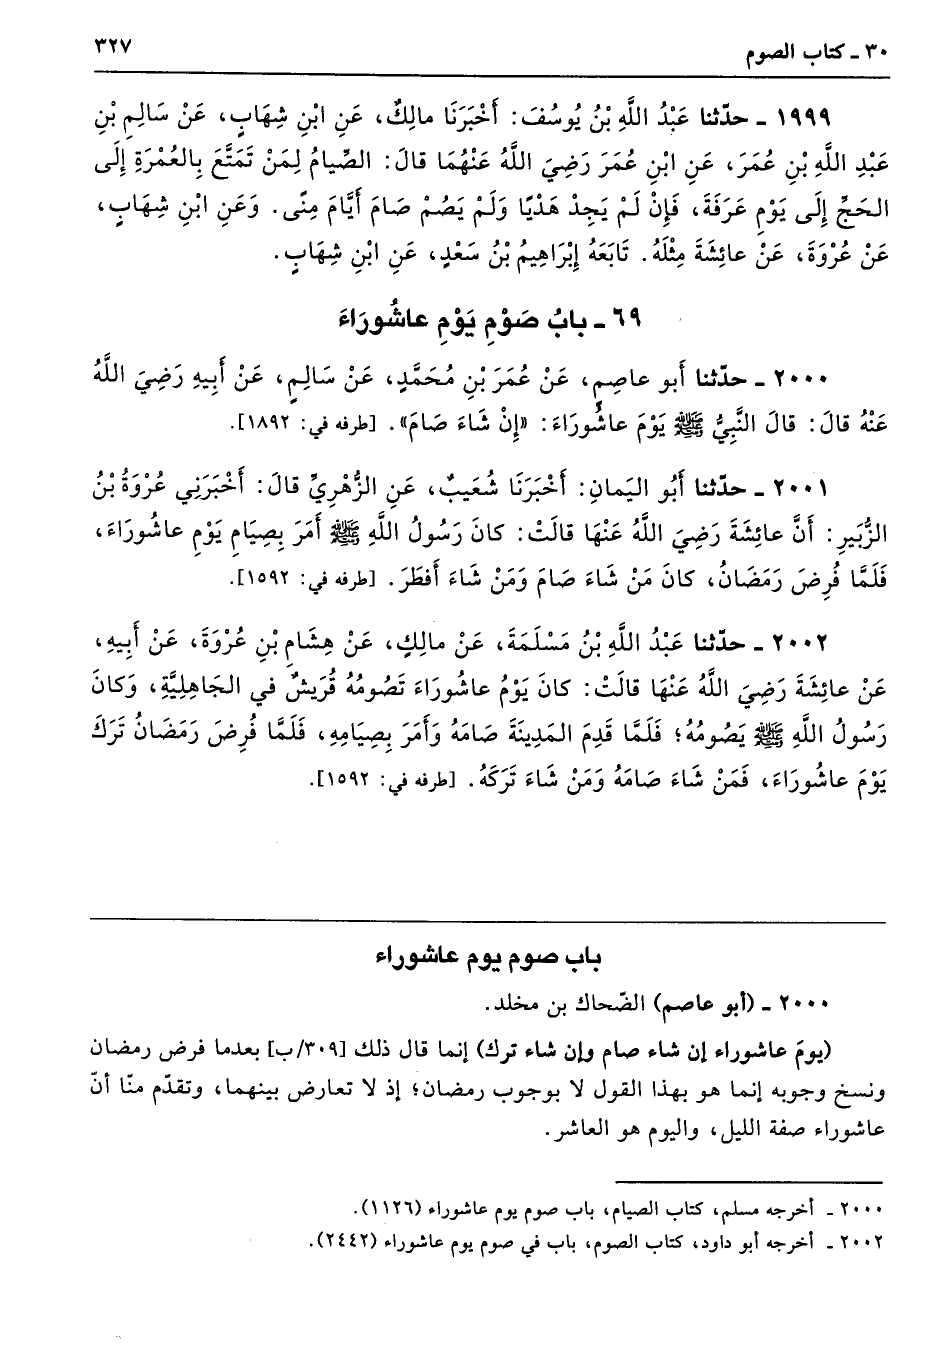 ٣٠ ـ كتاب الصوم ٣٢٧
١٩٩٩ ـ حدّثنا عَبْدُ اللَّهِ بْنُ يُوسُفَ: أَخْبَرَنَا مالِكٌ، عَنِ ابْنِ شِهَابٍ، عَنْ سَالِمِ بْنِ
عَبْدِ اللَّهِ بْنِ عُمَرَ، عَنِ ابْنِ عُمَرَ رَضِيَ اللَّهُ عَنْهُمَا قالَ: الصِّيامُ لِمَنْ تَمَتَّعَ بِالعُمْرَةِ إِلَى
الحَجِّ إِلَى يَوْمِ عَرَفَةَ، فَإِنْ لَمْ يَجِدْ هَدْيًا وَلَمْ يَصُمْ صَامَ أَيَّامَ مِنًى. وَعَنِ ابْنِ شِهَابٍ،
عَنْ عُرْوَةَ، عَنْ عائِشَةَ مِثْلَهُ. تَابَعَهُ إِبْرَاهِيمُ بْنُ سَعْدٍ، عَنِ ابْنِ شِهَابٍ.
٦٩ ـ بابُ صَوْمِ يَوْمِ عاشُورَاءَ
٢٠٠٠ ـ حدّثنا أَبو عاصِمٍ، عَنْ عُمَرَ بْنِ مُحَمَّدٍ، عَنْ سَالِمٍ، عَنْ أَبِيهِ رَضِيَ اللَّهُ
عَنْهُ قالَ: قالَ النَّبِيُّ ﷺ يَوْمَ عاشُورَاءَ: «إِنْ شَاءَ صَامَ». [طرفه في: ١٨٩٢].
٢٠٠١ ـ حدّثنا أَبُو اليَمانِ: أَخْبَرَنَا شُعَيبٌ، عَنِ الزُّهْرِيِّ قالَ: أَخْبَرَنِي عُرْوَةُ بْنُ
الزُّبَيرِ: أَنَّ عائِشَةَ رَضِيَ اللَّهُ عَنْهَا قالَتْ: كانَ رَسُولُ اللَّهِ ﷺ أَمَرَ بِصِيَامِ يَوْمِ عاشُورَاءَ،
فَلَمَّا فُرِضَ رَمَضَانُ، كانَ مَنْ شَاءَ صَامَ وَمَنْ شَاءَ أَفطَرَ. [طرفه في: ١٥٩٢].
٢٠٠٢ ـ حدّثنا عَبْدُ اللَّهِ بْنُ مَسْلَمَةَ، عَنْ مالِكٍ، عَنْ هِشَامِ بْنِ عُرْوَةَ، عَنْ أَبِيهِ،
عَنْ عائِشَةَ رَضِيَ اللَّهُ عَنْهَا قالَتْ: كانَ يَوْمُ عاشُورَاءَ تَصُومُهُ قُرَيشٌ في الجَاهِلِيَّةِ، وَكانَ
رَسُولُ اللَّهِ ﷺ يَصُومُهُ؛ فَلَمَّا قَدِمَ المَدِينَةَ صَامَهُ وَأَمَرَ بِصِيَامِهِ، فَلَمَّا فُرِضَ رَمَضَانُ تَرَكَ
يَوْمَ عاشُورَاءَ، فَمَنْ شَاءَ صَامَهُ وَمَنْ شَاءَ تَرَكَهُ. [طرفه في: ١٥٩٢].
باب صوم يوم عاشوراء
٢٠٠٠ ـ (أبو عاصم) الضّحاك بن مخلد.
(يومَ عاشوراء إن شاء صام وإن شاء ترك) إنما قال ذلك [٣٠٩/ب] بعدما فرض رمضان
ونسخ وجوبه إنما هو بهذا القول لا بوجوب رمضان؛ إذ لا تعارض بينهما، وتقدّم منّا أنّ
عاشوراء صفة الليل، واليوم هو العاشر.
٢٠٠٠ ـ أخرجه مسلم، كتاب الصيام، باب صوم يوم عاشوراء (١١٢٦).
٢٠٠٢ ـ أخرجه أبو داود، كتاب الصوم، باب في صوم يوم عاشوراء (٢٤٤٢).